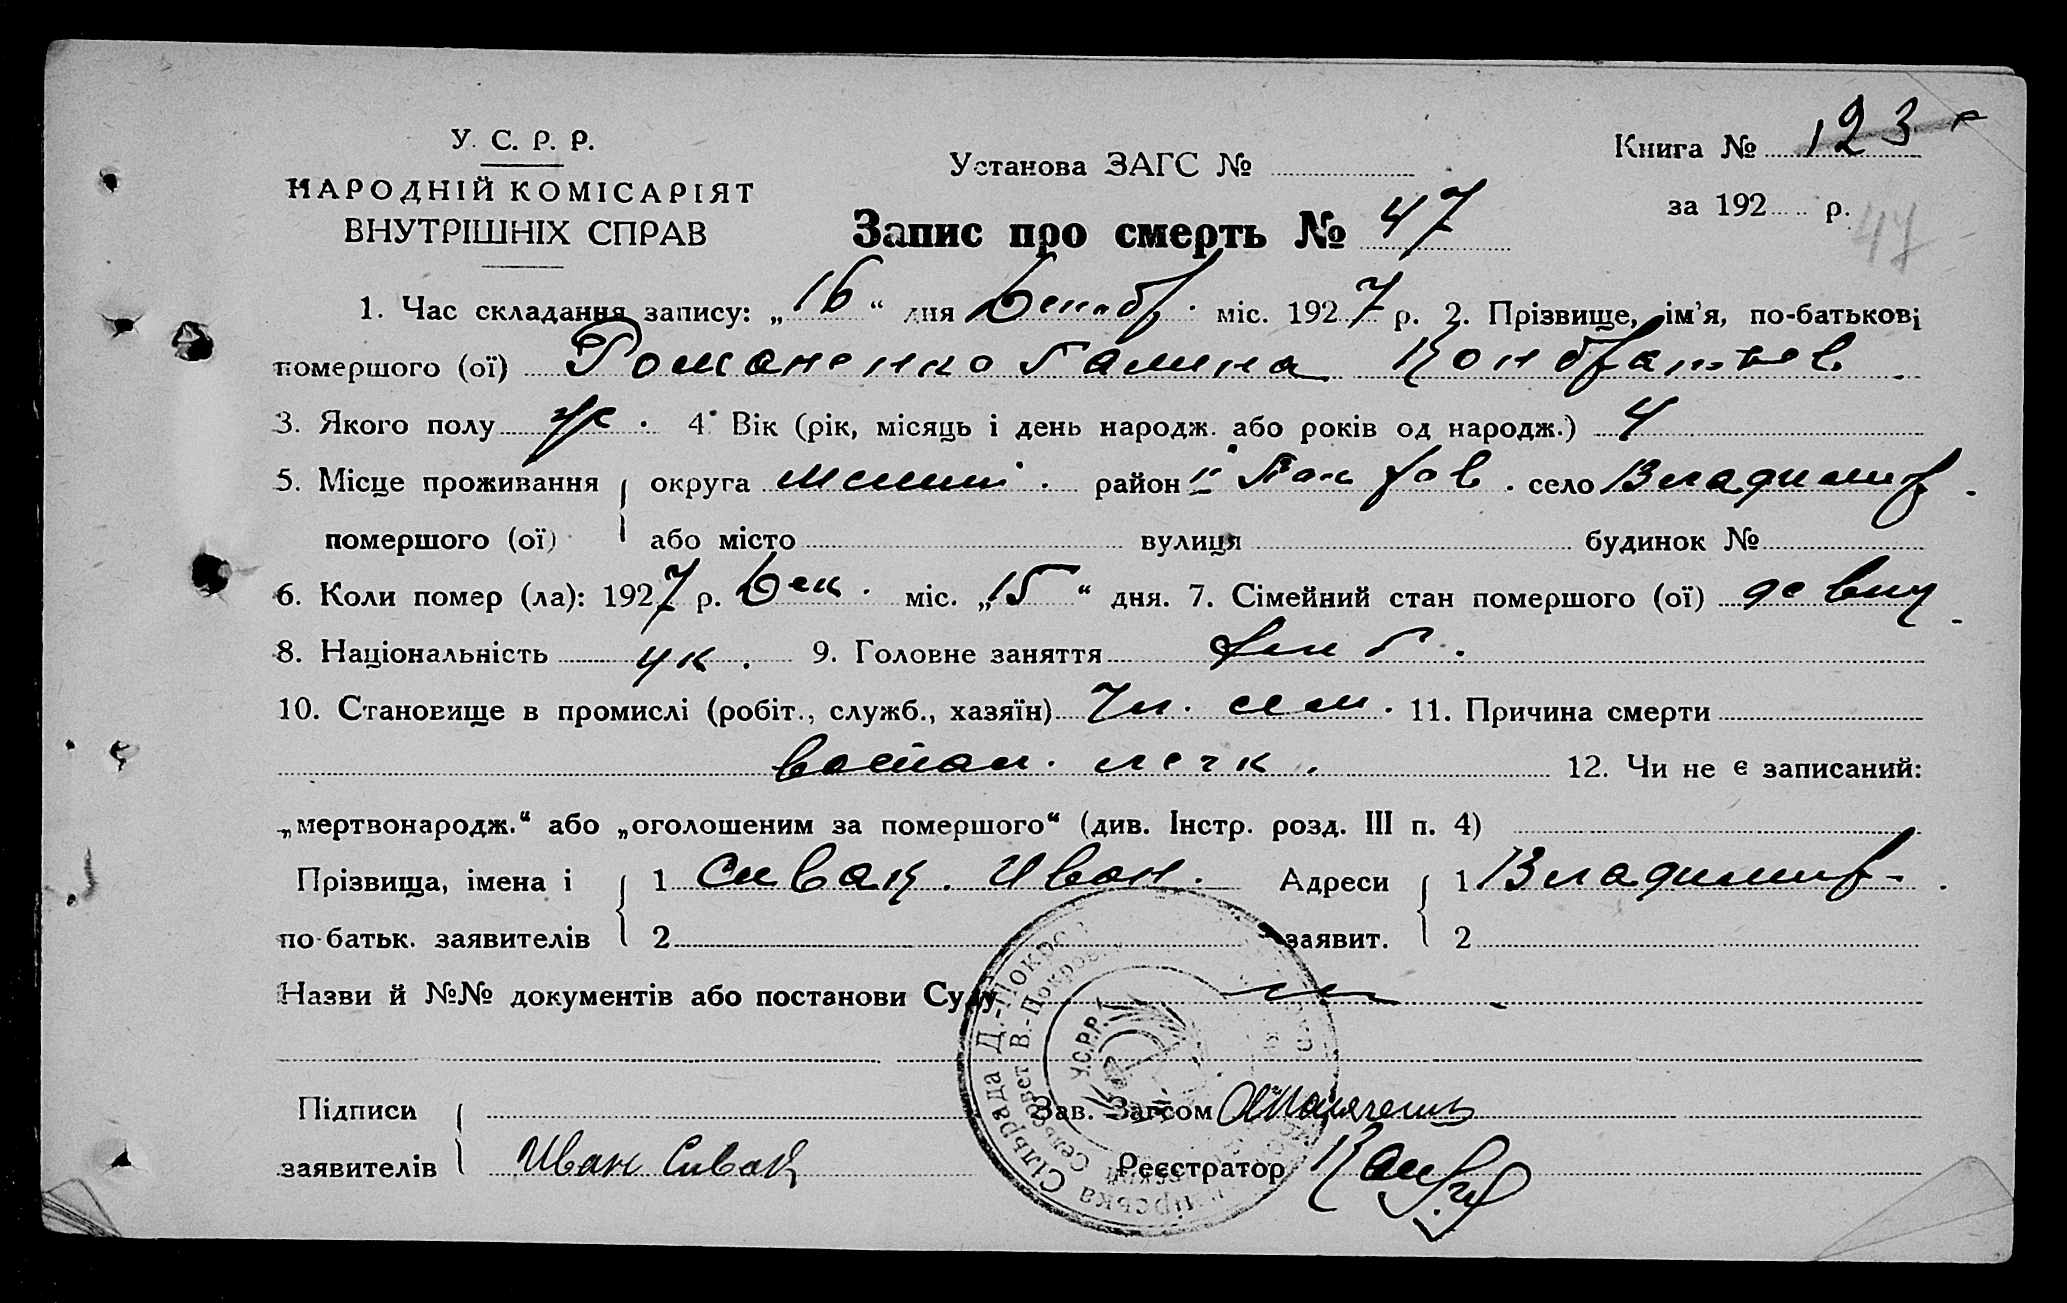 У. С. Р. Р.
НАРОДНІЙ КОМІСАРІЯТ
ВНУТРІШНІХ СПРАВ
Установа ЗАГС №
Запис про смерть № 47
Книга № 123
за 192 р.
47
1. Час складання запису: „16“ дня міс. 1927 р. 2. Прізвище, ім'я, по-батькові
помершого (ої) Романенко Галина Кондратьев.
3. Якого полу ж. 4. Вік (рік, місяць і день народж. або років од народж.) 4
5. Місце проживання округа район село Владимир.
помершого (ої) або місто вулиця будинок №
6. Коли помер (ла): 1927 р. Дек. міс. „15“ дня. 7. Сімейний стан помершого (ої) девиц
8. Національність ук. 9. Головне заняття хлеб.
10. Становище в промислі (робіт., служб., хазяїн) Чл. сем. 11. Причина смерти
воспал. легк. 12. Чи не є записаний:
„мертвонародж.“ або „оголошеним за помершого“ (див. Інстр. розд. III п. 4)
Прізвища, імена і 1 Сивак. Иван. Адреси 1 Владимир.
по-батьк. заявителів 2 заявит. 2
Назви й №№ документів або постанови Суду
У.С.Р.Р.
Підписи Зав. Загсом
заявителів Иван Сивак Реєстратор